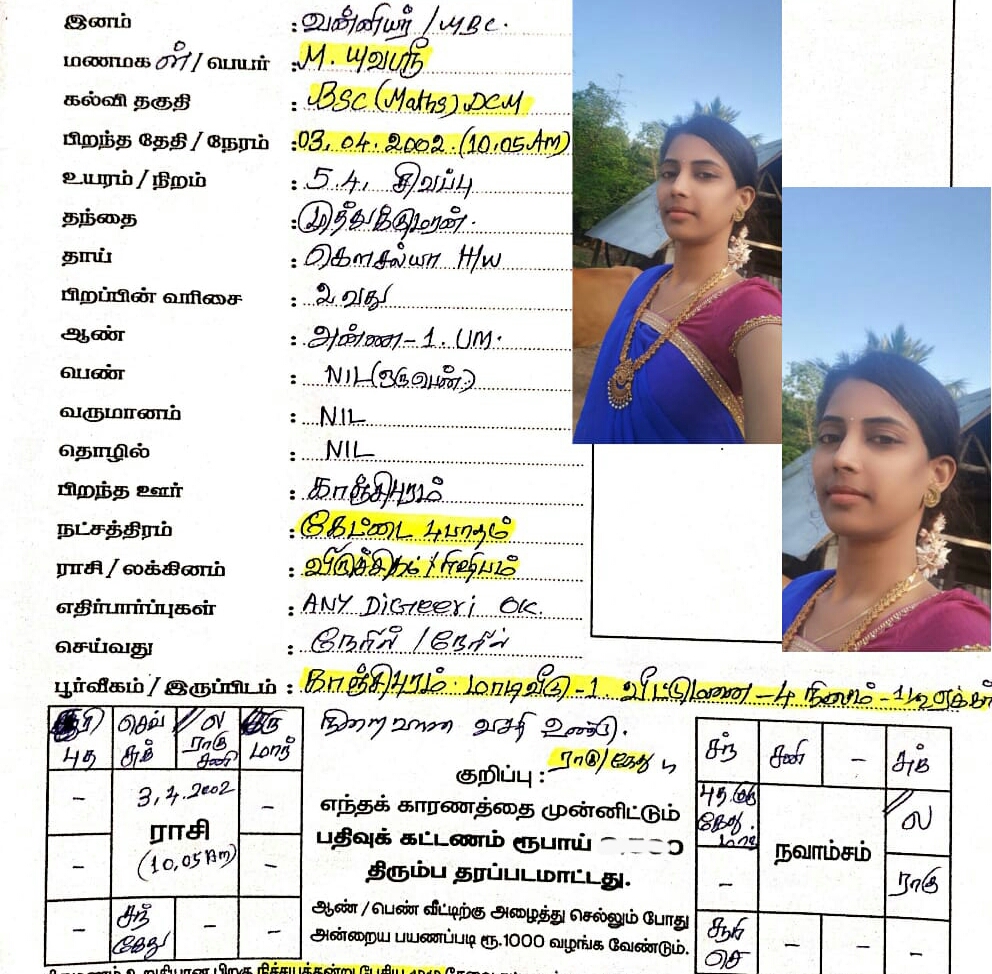 இனம் : வன்னியர் / MBC.
மணமகள் / பெயர் : M. யுவஸ்ரீ
கல்வி தகுதி : BSC (Maths) DCM
பிறந்த தேதி / நேரம் : 03. 04. 2002. (10.05 Am)
உயரம் / நிறம் : 5 4, சிவப்பு
தந்தை : முத்துக்குமரன்.
தாய் : கௌசல்யா H/W
பிறப்பின் வரிசை : 2 வது
ஆண் : அண்ணா - 1. UM.
பெண் : NIL (ஒரு பெண்.)
வருமானம் : NIL
தொழில் : NIL
பிறந்த ஊர் : காஞ்சிபுரம்
நட்சத்திரம் : கேட்டை 4 பாதம்
ராசி / லக்கினம் : விருச்சிகம் / ரிஷபம்
எதிர்பார்ப்புகள் : ANY DiGreeri OK.
செய்வது : நேரில் / நேரில்
பூர்வீகம் / இருப்பிடம் : காஞ்சிபுரம். மாடிவீடு - 1 வீட்டுமனை - 4 நிலம் - 1½
நிறைவான வசதி உண்டு.
சூரி செவ் ல குரு
புத சுக் ராகு மாந்
சனி
- 3.4.2002 -
ராசி
- (10.05 Am) -
- சந் - -
கேது
ராகு / கேது
குறிப்பு :
எந்தக் காரணத்தை முன்னிட்டும்
பதிவுக் கட்டணம் ரூபாய்
திரும்ப தரப்படமாட்டது.
ஆண் / பெண் வீட்டிற்கு அழைத்து செல்லும் போது
அன்றைய பயணப்படி ரூ.1000 வழங்க வேண்டும்.
சந் சனி - சுக்
புத குரு ல
கேது.
மாந்
நவாம்சம்
- ராகு
சூரி - - -
செ